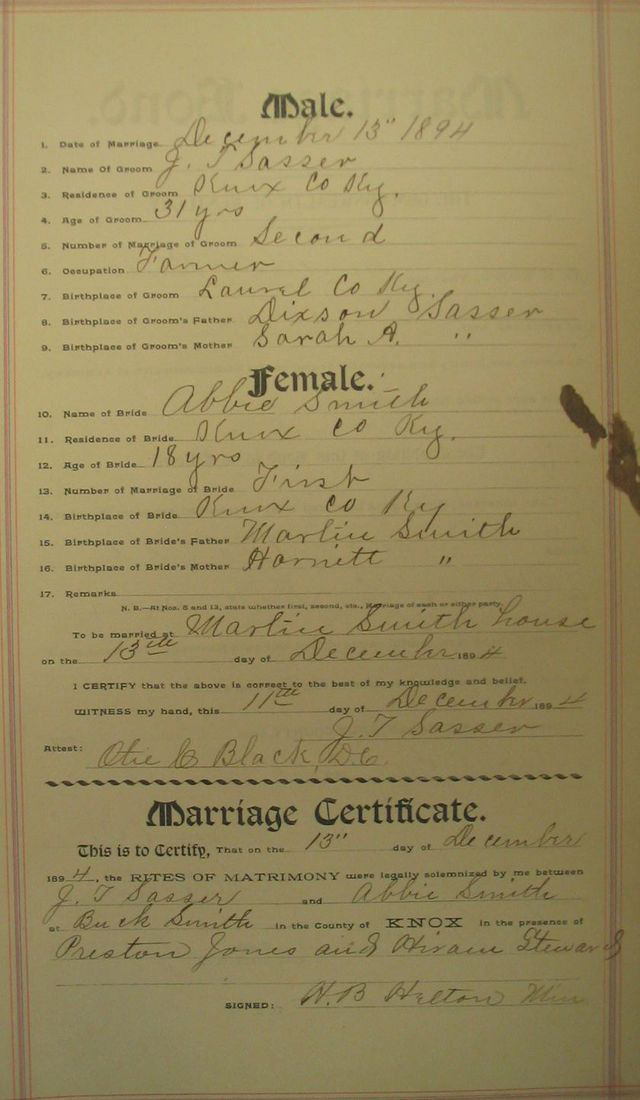 Male.
1. Date of Marriage December 13" 1894
2. Name Of Groom J. T Sasser
3. Residence of Groom Knox Co Ky.
4. Age of Groom 31 yrs
5. Number of Marriage of Groom Second
6. Occupation Farmer
7. Birthplace of Groom Laurel Co Ky.
8. Birthplace of Groom's Father Dixson Sasser
9. Birthplace of Groom's Mother Sarah A. "
Female.
10. Name of Bride Abbie Smith
11. Residence of Bride Knox Co Ky.
12. Age of Bride 18 yrs
13. Number of Marriage of Bride First
14. Birthplace of Bride Knox Co Ky
15. Birthplace of Bride's Father Martin Smith
16. Birthplace of Bride's Mother Harriett "
17. Remarks
N. B.—At Nos. 5 and 13, state whether first, second, etc., Marriage of each or either party.
To be married at Martin Smith house
on the 13th day of December 1894
I CERTIFY that the above is correct to the best of my knowledge and belief.
WITNESS my hand, this 11th day of December 1894
J. T Sasser
Attest: Otie C Black, D.C.
Marriage Certificate.
This is to Certify, That on the 13" day of December
1894, the RITES OF MATRIMONY were legally solemnized by me between
J. T Sasser and Abbie Smith
at Buck Smith in the County of KNOX in the presence of
Preston Jones and Hiram Steward
SIGNED: H. B Helton Min